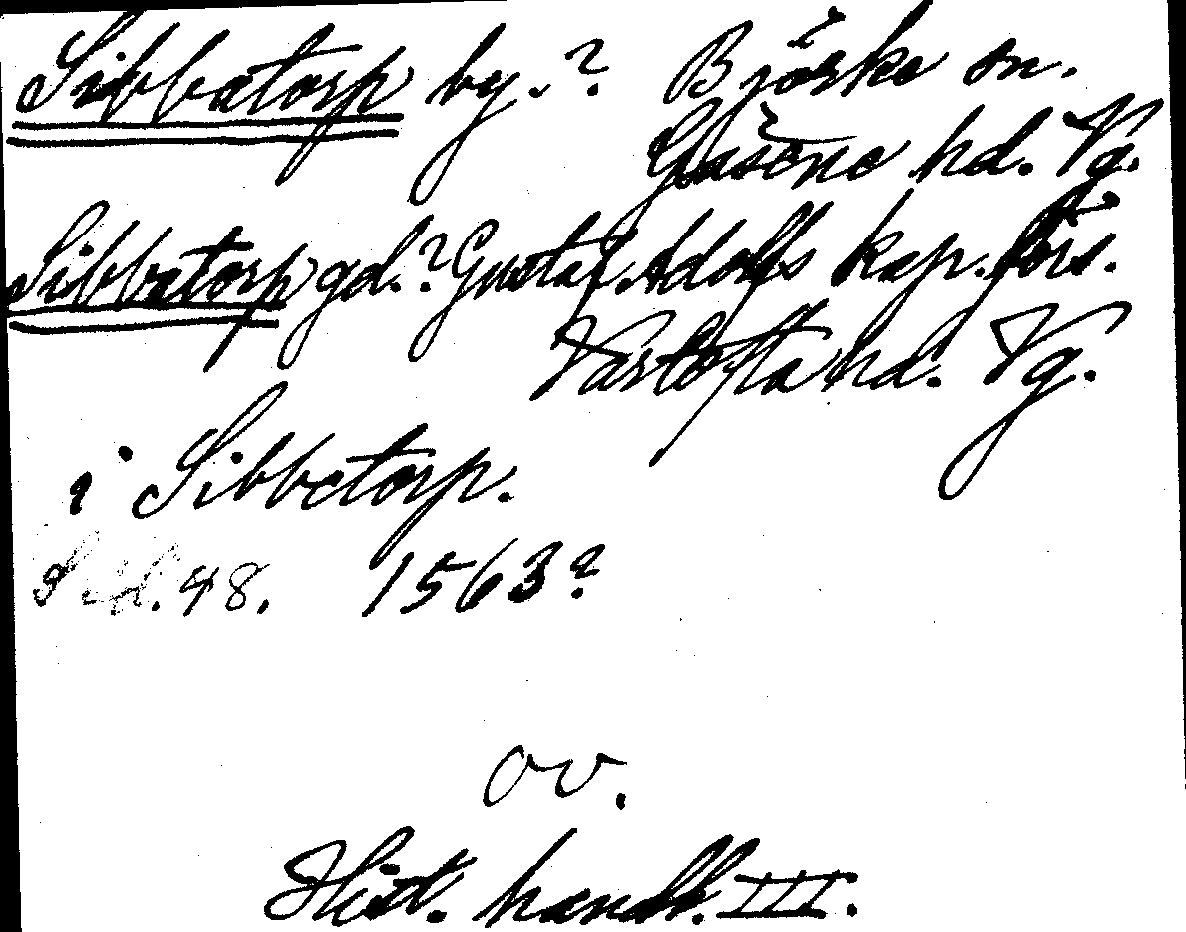 Sibbatorp by.? Björke sn.
Gäsene hd. Vg.
Sibbatorp gd.? Gustaf Adolfs kap. förs.
Vartofta hd. Vg.
i Sibbetorp.
Sid. 48. 1563?
OV.
Hist. handl. III.